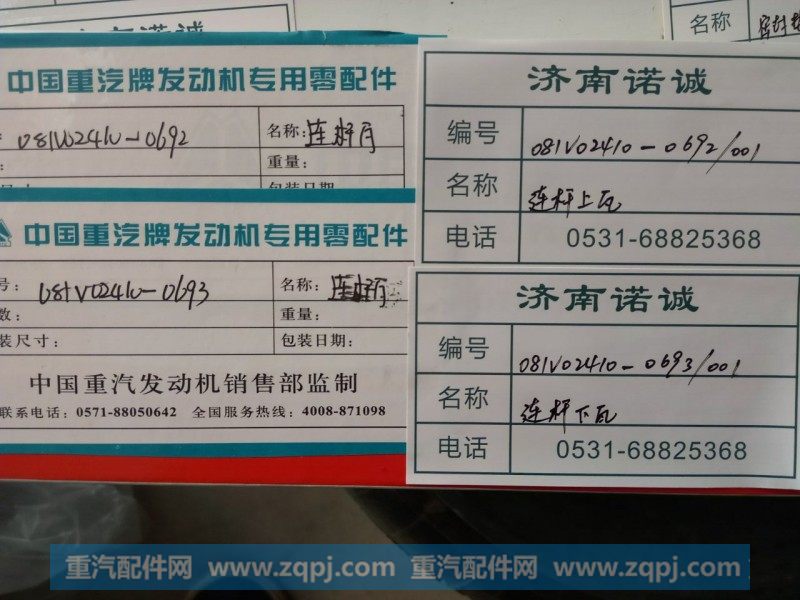 名称
中国重汽牌发动机专用零配件
081V02410-0692
名称: 连杆瓦
重量:
包装日期
中国重汽牌发动机专用零配件
号: 081V02410-0693
名称: 连杆瓦
数:
重量:
装尺寸:
包装日期:
中国重汽发动机销售部监制
联系电话: 0571-88050642 全国服务热线: 4008-871098
济南诺诚
编号 081V02410-0692/001
名称 连杆上瓦
电话 0531-68825368
济南诺诚
编号 081V02410-0693/001
名称 连杆下瓦
电话 0531-68825368
重汽配件网 www.zqpj.com 重汽配件网 www.zqpj.com